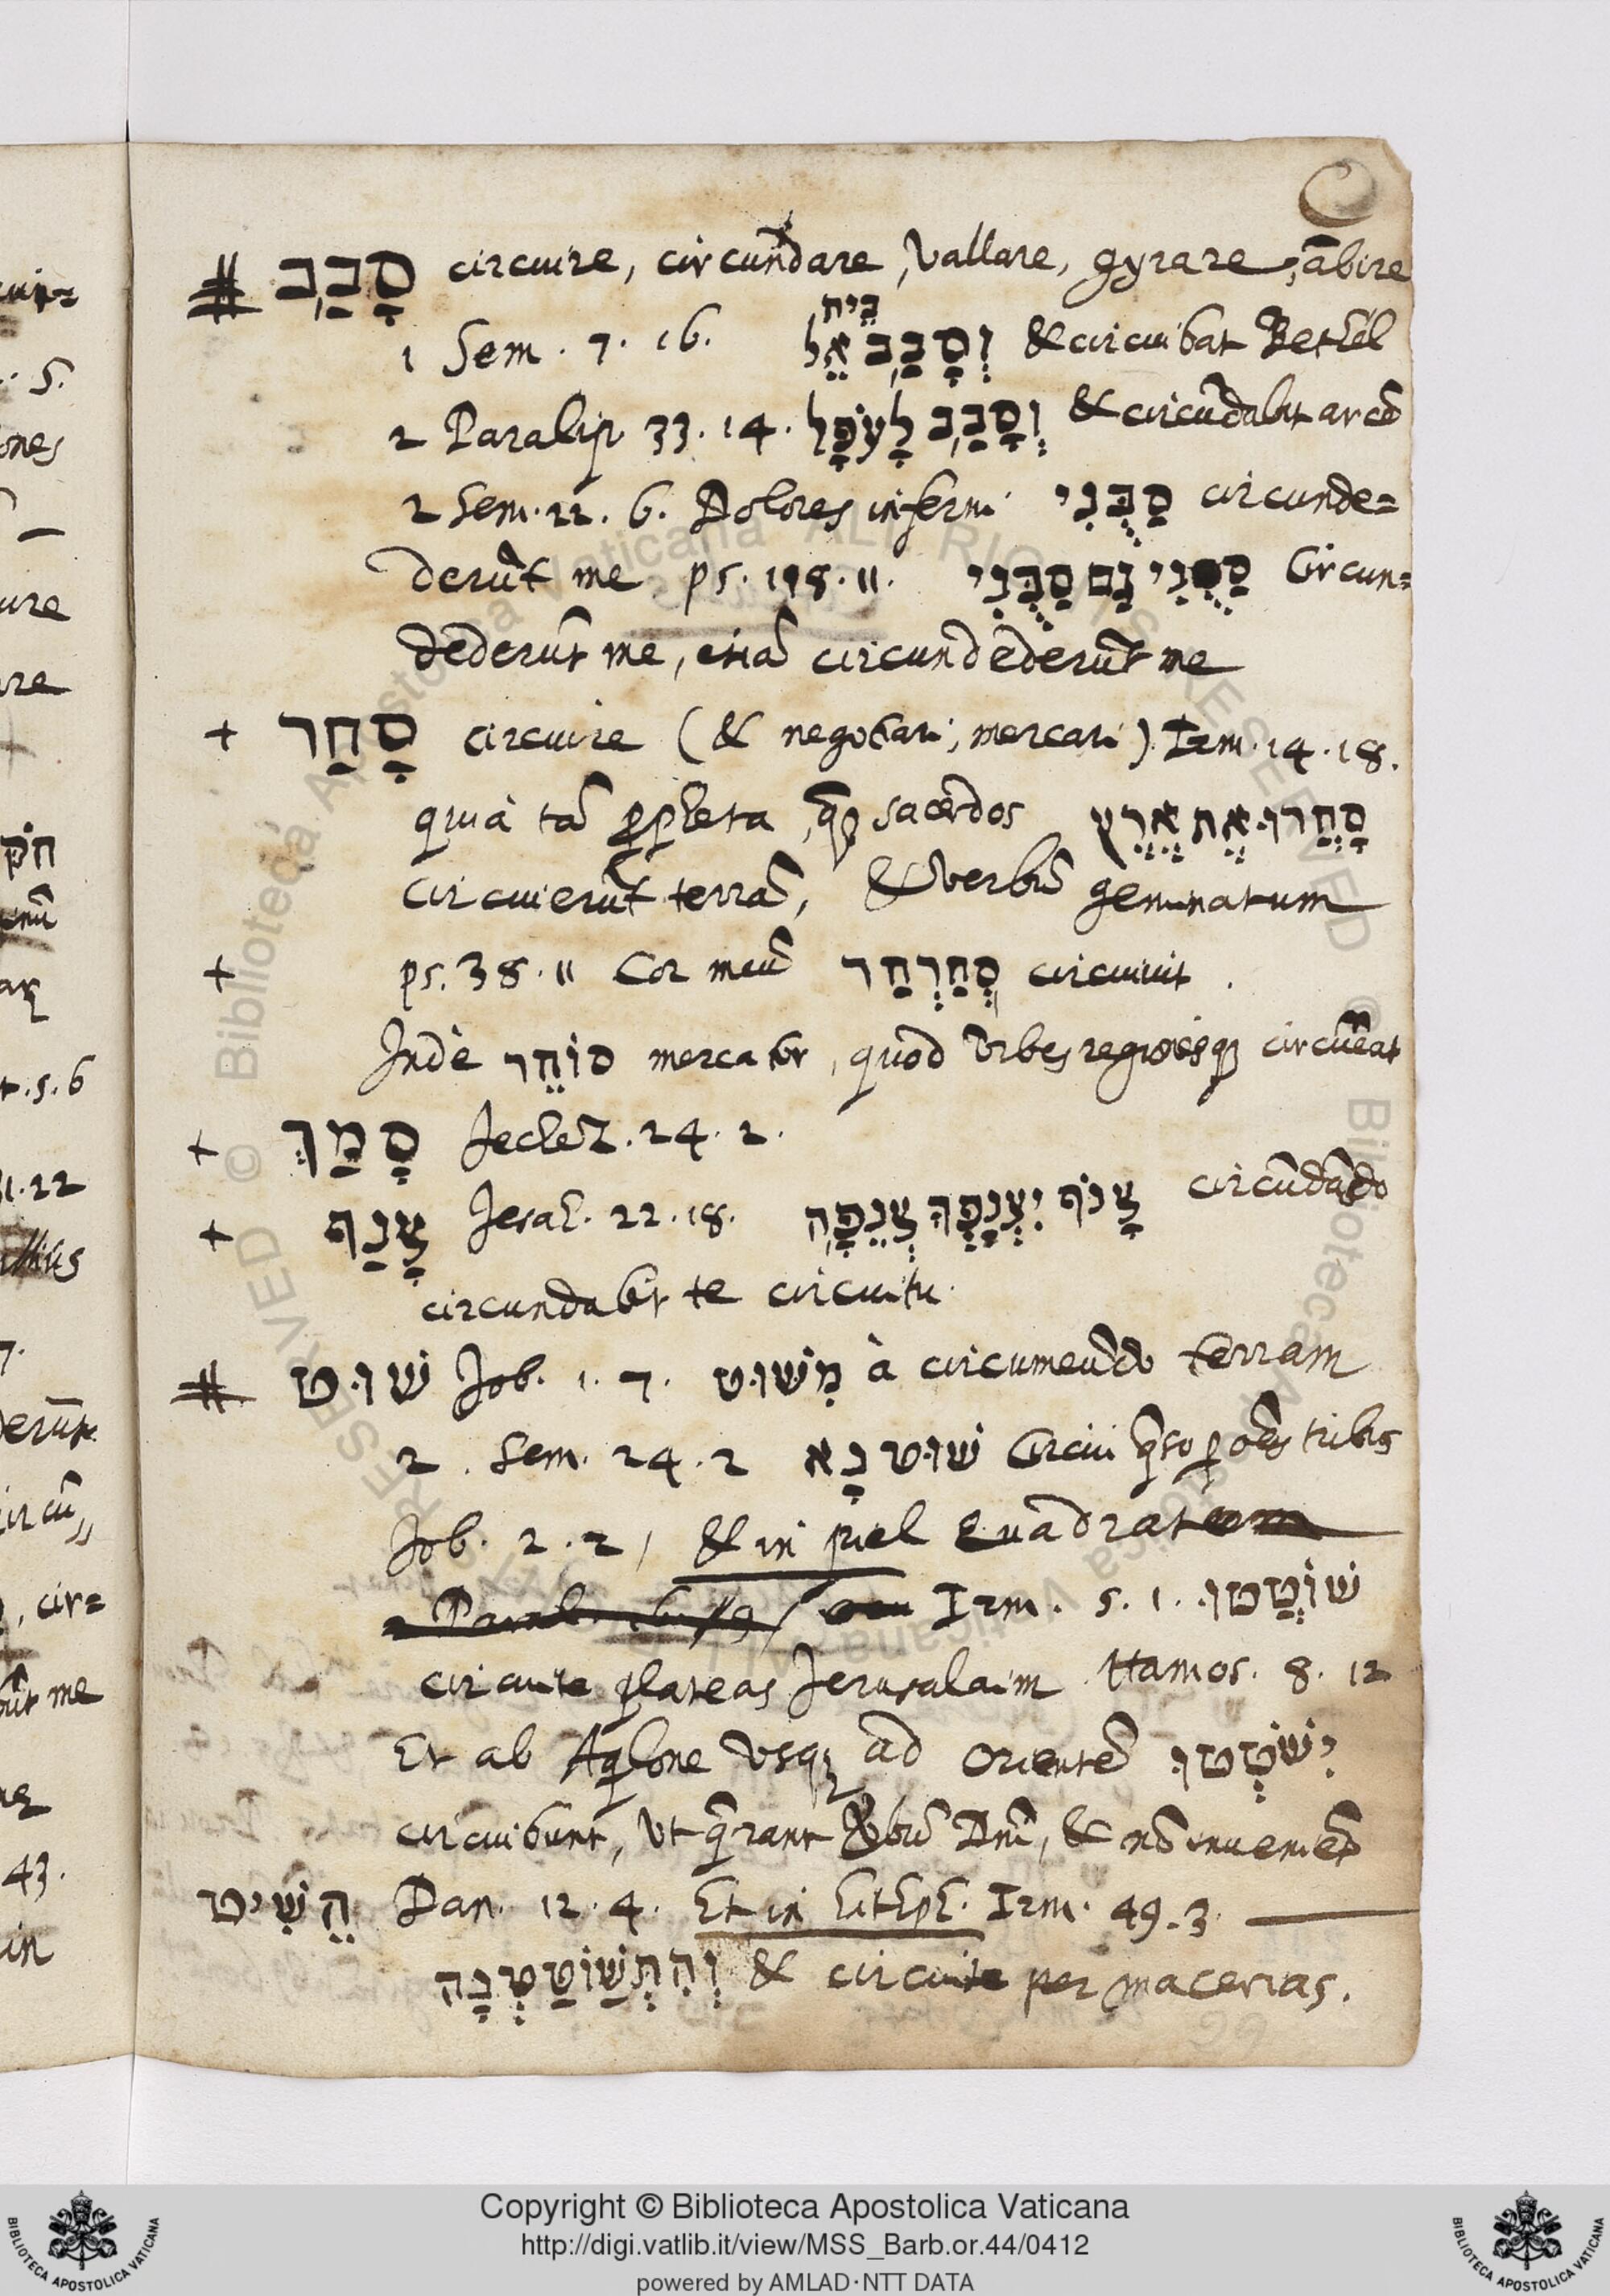 סָבַב circuire, circundare, vallare, gyrare, ābire
1 Sem. 7. 16. וְסָבַב בֵּית אֵל & circuibat Bethel
2 Paralip 33. 14. וְסָבַב לָעֹפֶל & circūdabit arcē
2 Sem. 22. 6. Dolores inferni סַבֻּנִי circunde=
derūt me ps. 118. 11. סַבֻּנִי גַם סְבָבֻנִי Circun=
dederūt me, etiā circundederūt me
+ סָחַר circuire (& negotiari, mercari) Irm. 14. 18.
quià tā ꝓpheta, qȝ sacerdos סָחֲרוּ אֶת אֶרֶץ
circuierūt terrā, & verbū geminatum
+ ps. 38. 11 Cor meū סְחַרְחַר circuivit.
Indè סוֹחֵר mercator, quod Urbes regionesqȝ circueat
+ סָמַךְ Jechez. 24. 2.
+ צָנַף Jesaī. 22. 18. צָנוֹף יִצְנָפְךָ צְנֵפָה circūdādo
circundabit te circuitu.
שׁוּט Job. 1. 7. מִשּׁוּט à circumeūdo terram
2. Sem. 24. 2 שׁוּט נָא Circui q̄so ꝑ oēs tribus
Job. 2. 2, & in piel quadrat
Irm. 5. 1. שׁוֹטְטוּ
circuite plateas Jerusalaim Hamos. 8. 12
Et ab Aqlone usqȝ ad Orientē יְשׁוֹטְטוּ
circuibunt, ut q̄rant Vbū Dnī, & nō invenient
הֵשִׁיט Dan. 12. 4. Et in hithph. Irm. 49. 3.
וְהִתְשׁוֹטַטְנָה & circuite per macerias.
Copyright © Biblioteca Apostolica Vaticana
http://digi.vatlib.it/view/MSS_Barb.or.44/0412
powered by AMLAD·NTT DATA